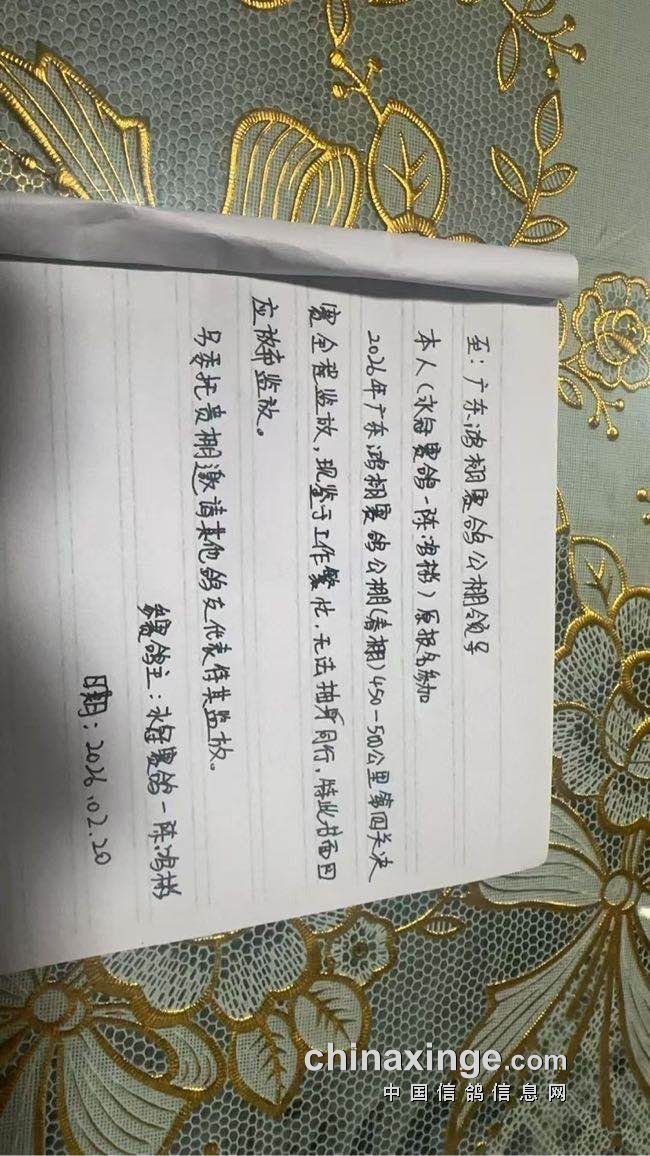 至：广东鸿栩赛鸽公棚领导
本人（永冠赛鸽-陈鸿彬）原报名参加
2026年广东鸿栩赛鸽公棚（春棚）450-500公里第四关决
赛全程监放，现鉴于工作繁忙，无法抽身同行，特此书面回
应放弃监放。
另委托贵棚邀请其他鸽友代表作其监放。
参赛鸽主：永冠赛鸽-陈鸿彬
日期：2026.02.20
chinaxinge.com
中国信鸽信息网